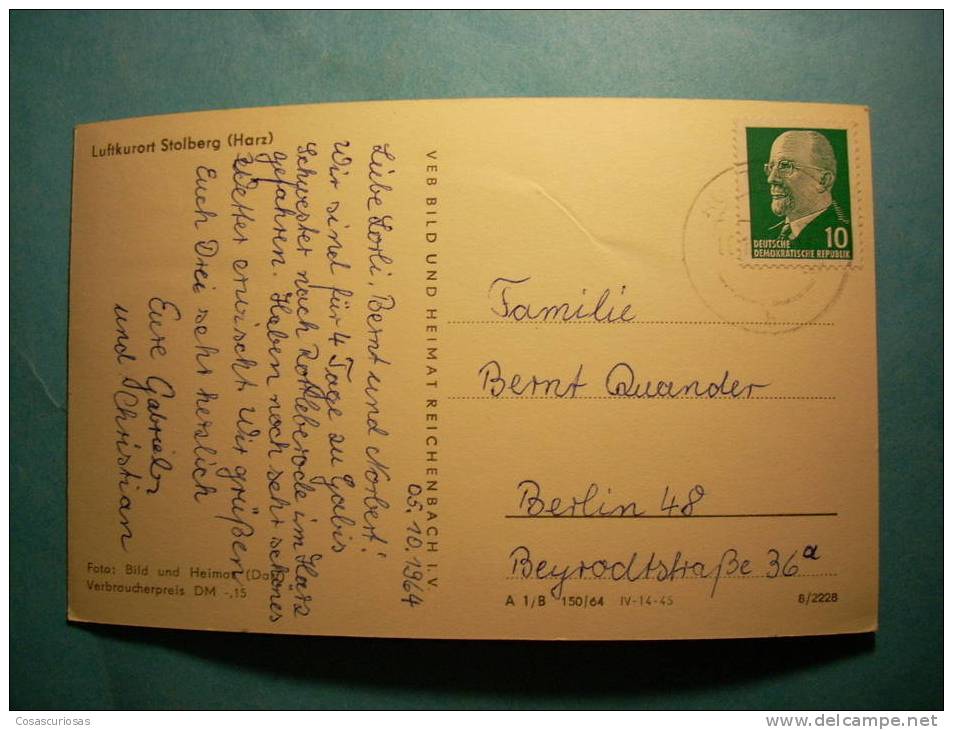 Luftkurort Stolberg (Harz)
05.10.1964
Liebe Lorli, Bernt und Norbert!
Wir sind für 4 Tage zu Gabis
Schwester nach Rottleberode im Harz
gefahren. Haben noch sehr schönes
Wetter erwischt. Wir grüßen
Euch Drei sehr herzlich
Eure Gabriela
und Christian
Foto: Bild und Heimat
Verbraucherpreis DM -,15
VEB BILD UND HEIMAT REICHENBACH I. V.
DEUTSCHE
DEMOKRATISCHE REPUBLIK
10
Familie
Bernt Quander
Berlin 48
Beyrodtstraße 36a
A 1/B 150/64 IV-14-45
8/2228
Cosascuriosas
www.delcampe.net